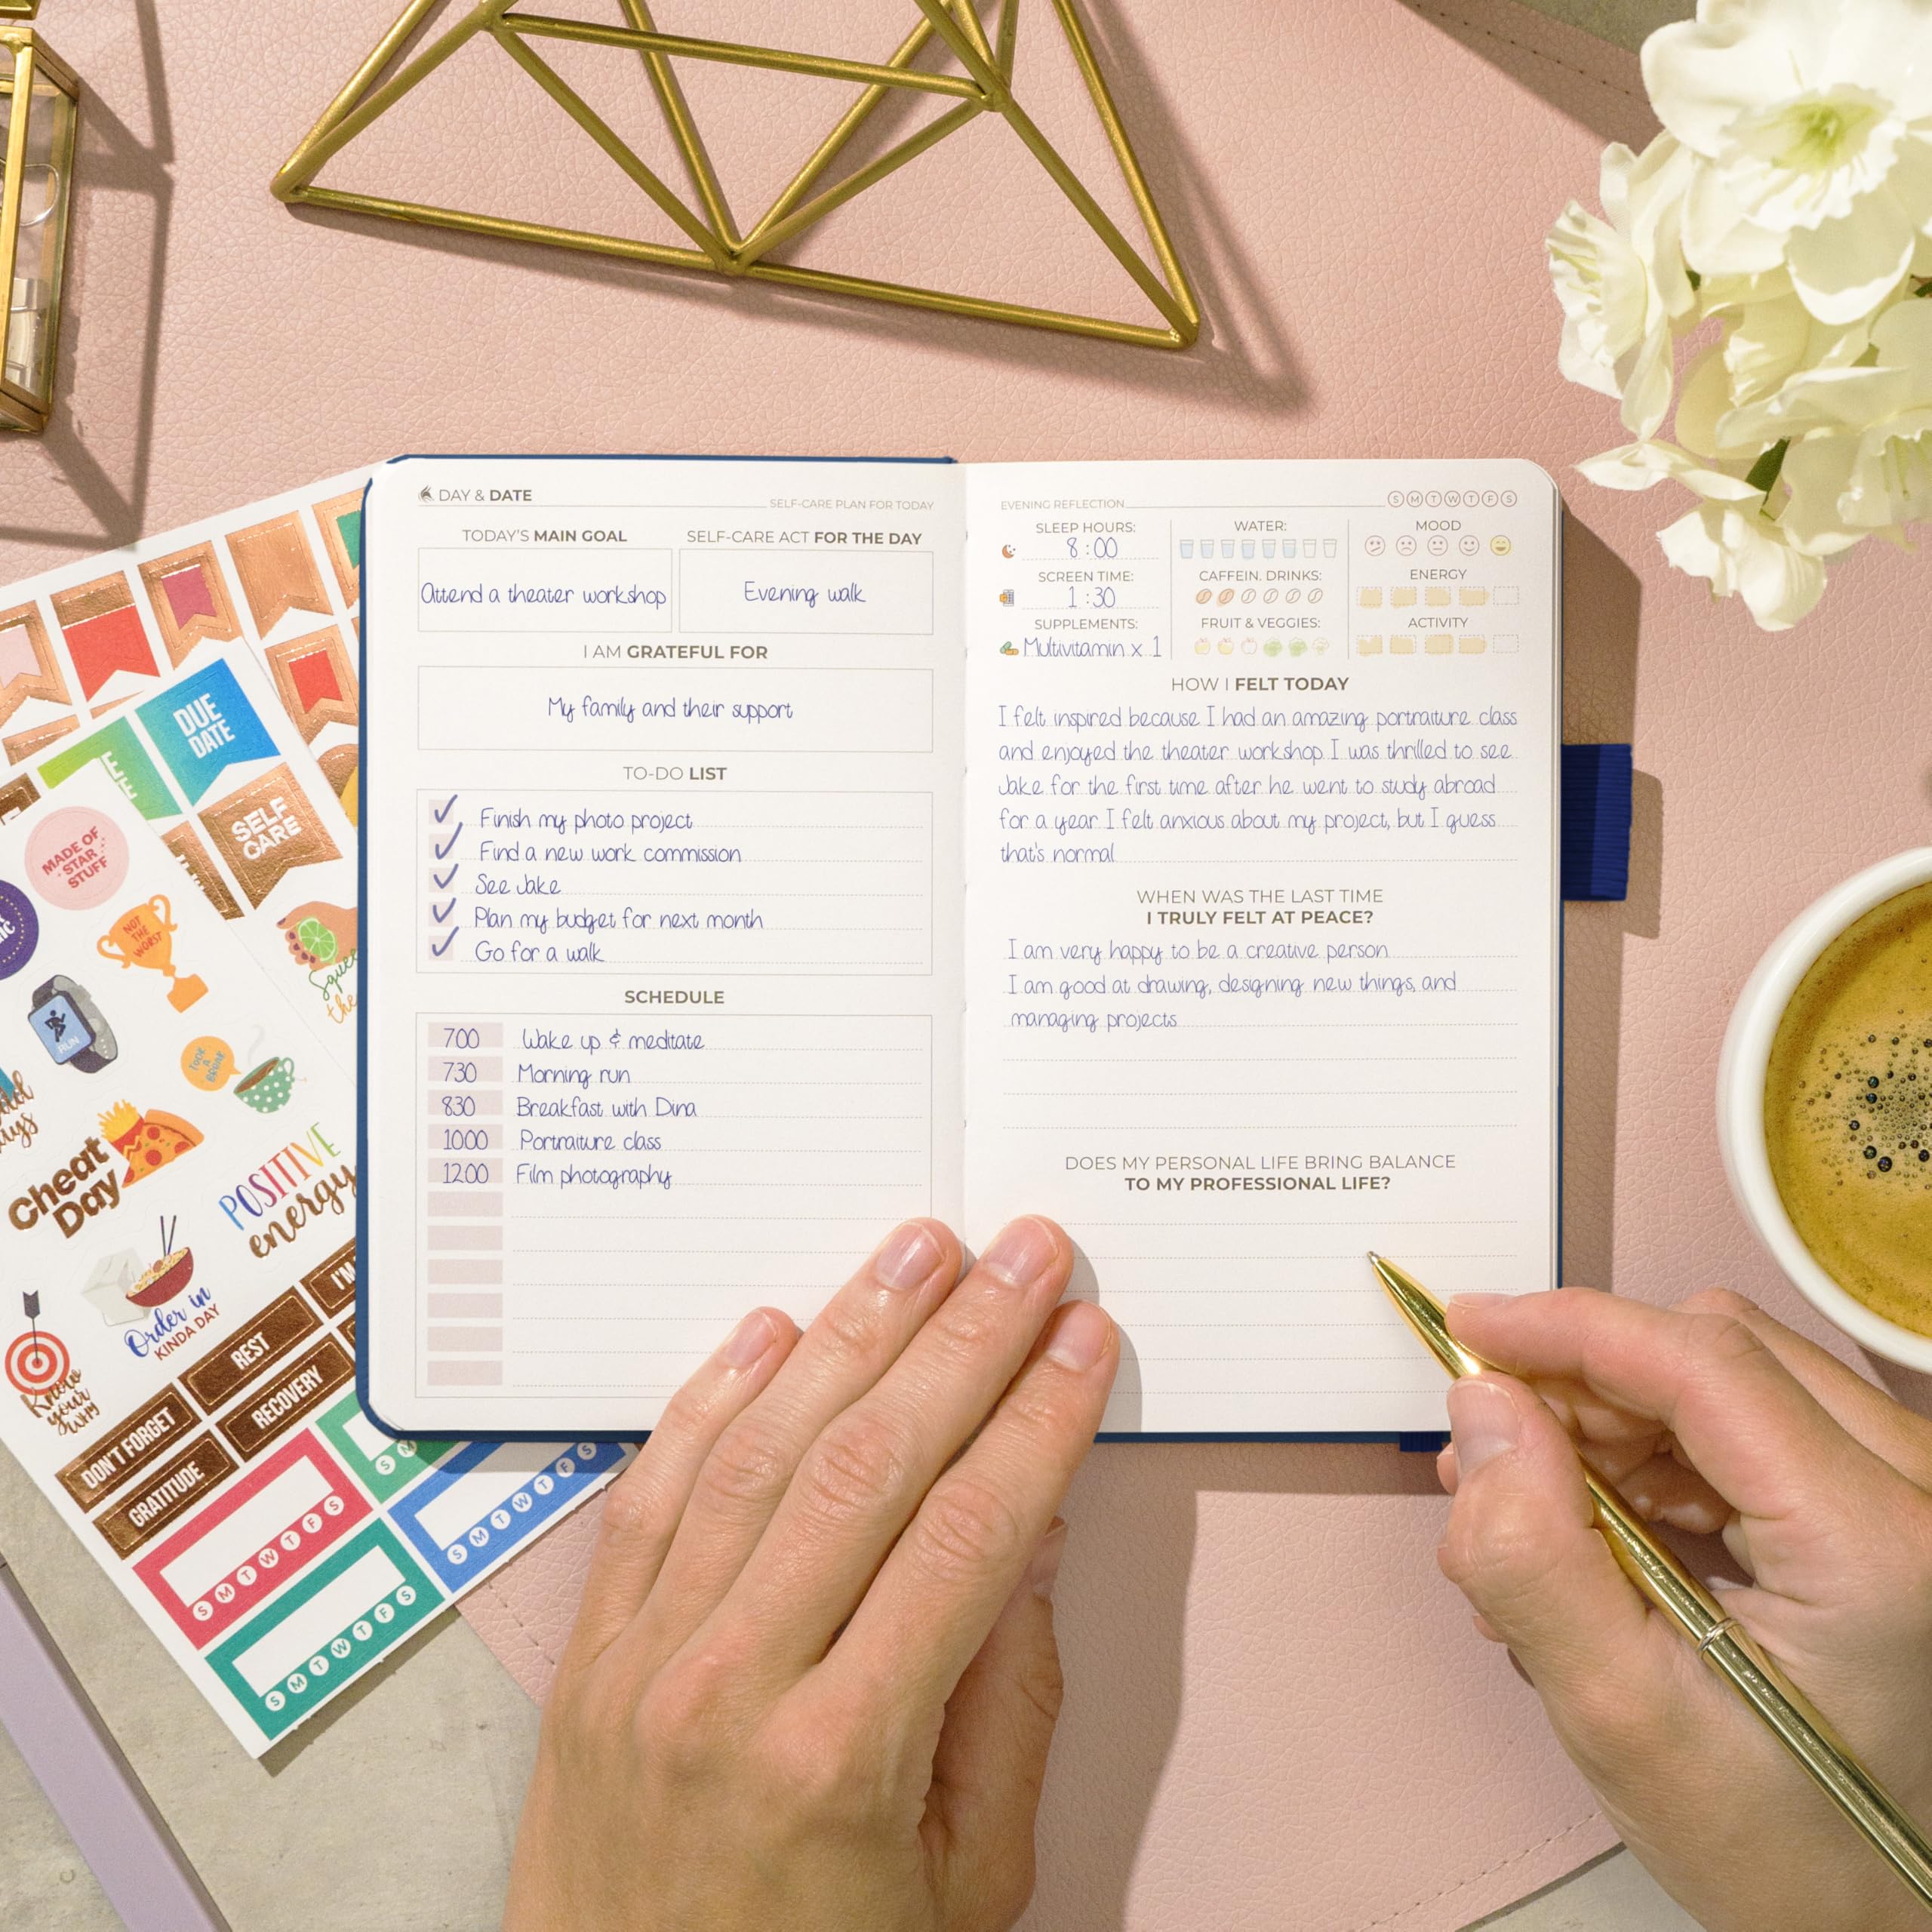 DAY & DATE
SELF-CARE PLAN FOR TODAY
TODAY'S MAIN GOAL
Attend a theater workshop
SELF-CARE ACT FOR THE DAY
Evening walk
I AM GRATEFUL FOR
My family and their support
TO-DO LIST
Finish my photo project
Find a new work commission
See Jake
Plan my budget for next month
Go for a walk
SCHEDULE
700 Wake up & meditate
730 Morning run
830 Breakfast with Dina
1000 Portraiture class
1200 Film photography
EVENING REFLECTION
S M T W T F S
SLEEP HOURS:
8:00
SCREEN TIME:
1:30
SUPPLEMENTS:
Multivitamin x 1
WATER:
CAFFEIN. DRINKS:
FRUIT & VEGGIES:
MOOD
ENERGY
ACTIVITY
HOW I FELT TODAY
I felt inspired because I had an amazing portraiture class
and enjoyed the theater workshop I was thrilled to see
Jake for the first time after he went to study abroad
for a year I felt anxious about my project, but I guess
that's normal
WHEN WAS THE LAST TIME
I TRULY FELT AT PEACE?
I am very happy to be a creative person
I am good at drawing, designing new things, and
managing projects
DOES MY PERSONAL LIFE BRING BALANCE
TO MY PROFESSIONAL LIFE?
DUE
DATE
SELF
CARE
MADE OF
STAR
STUFF
NOT
THE
WORST
RUN
TAKE
A
BREAK
Cheat
Day
POSITIVE
energy
Order in
KINDA DAY
Know
your
WHY
REST
I'M
DON'T FORGET
RECOVERY
GRATITUDE
S M T W T F S
S M
S M T W T F S
S M T W T F S